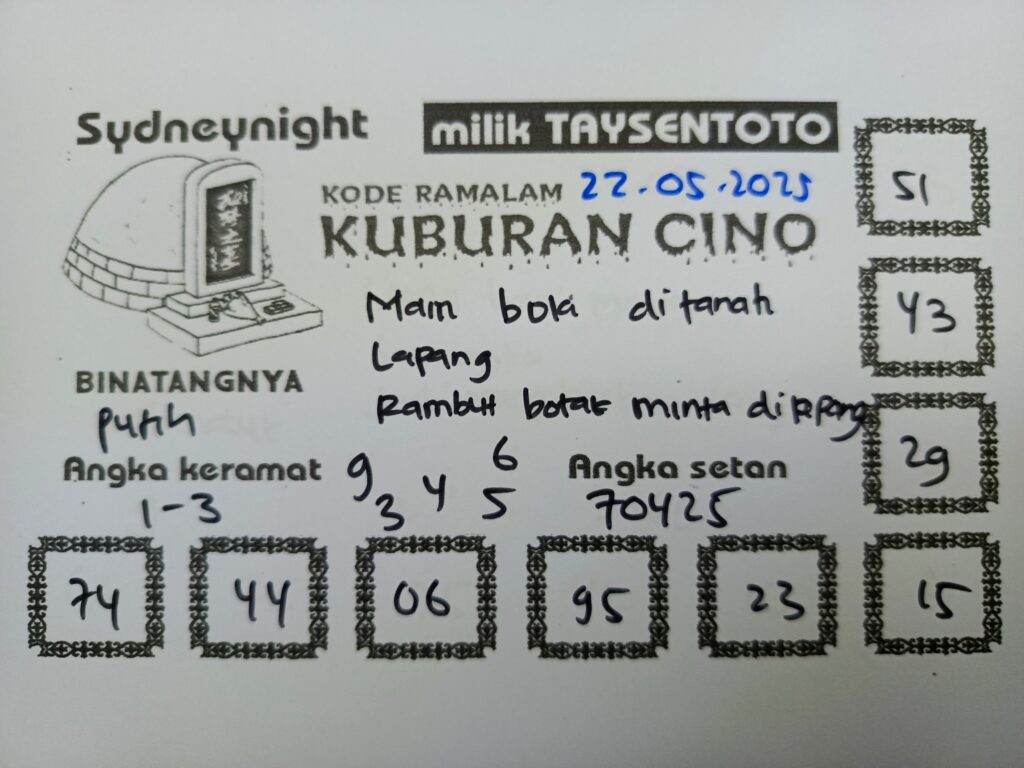 Sydneynight
milik TAYSENTOTO
KODE RAMALAM 22.05.2025
KUBURAN CINO
Main bola ditanah
Lapang
Rambut botak minta dikepang
BINATANGNYA
putih
Angka keramat
1-3
9 6
3 4 5
Angka setan
70425
51
43
29
74 44 06 95 23 15